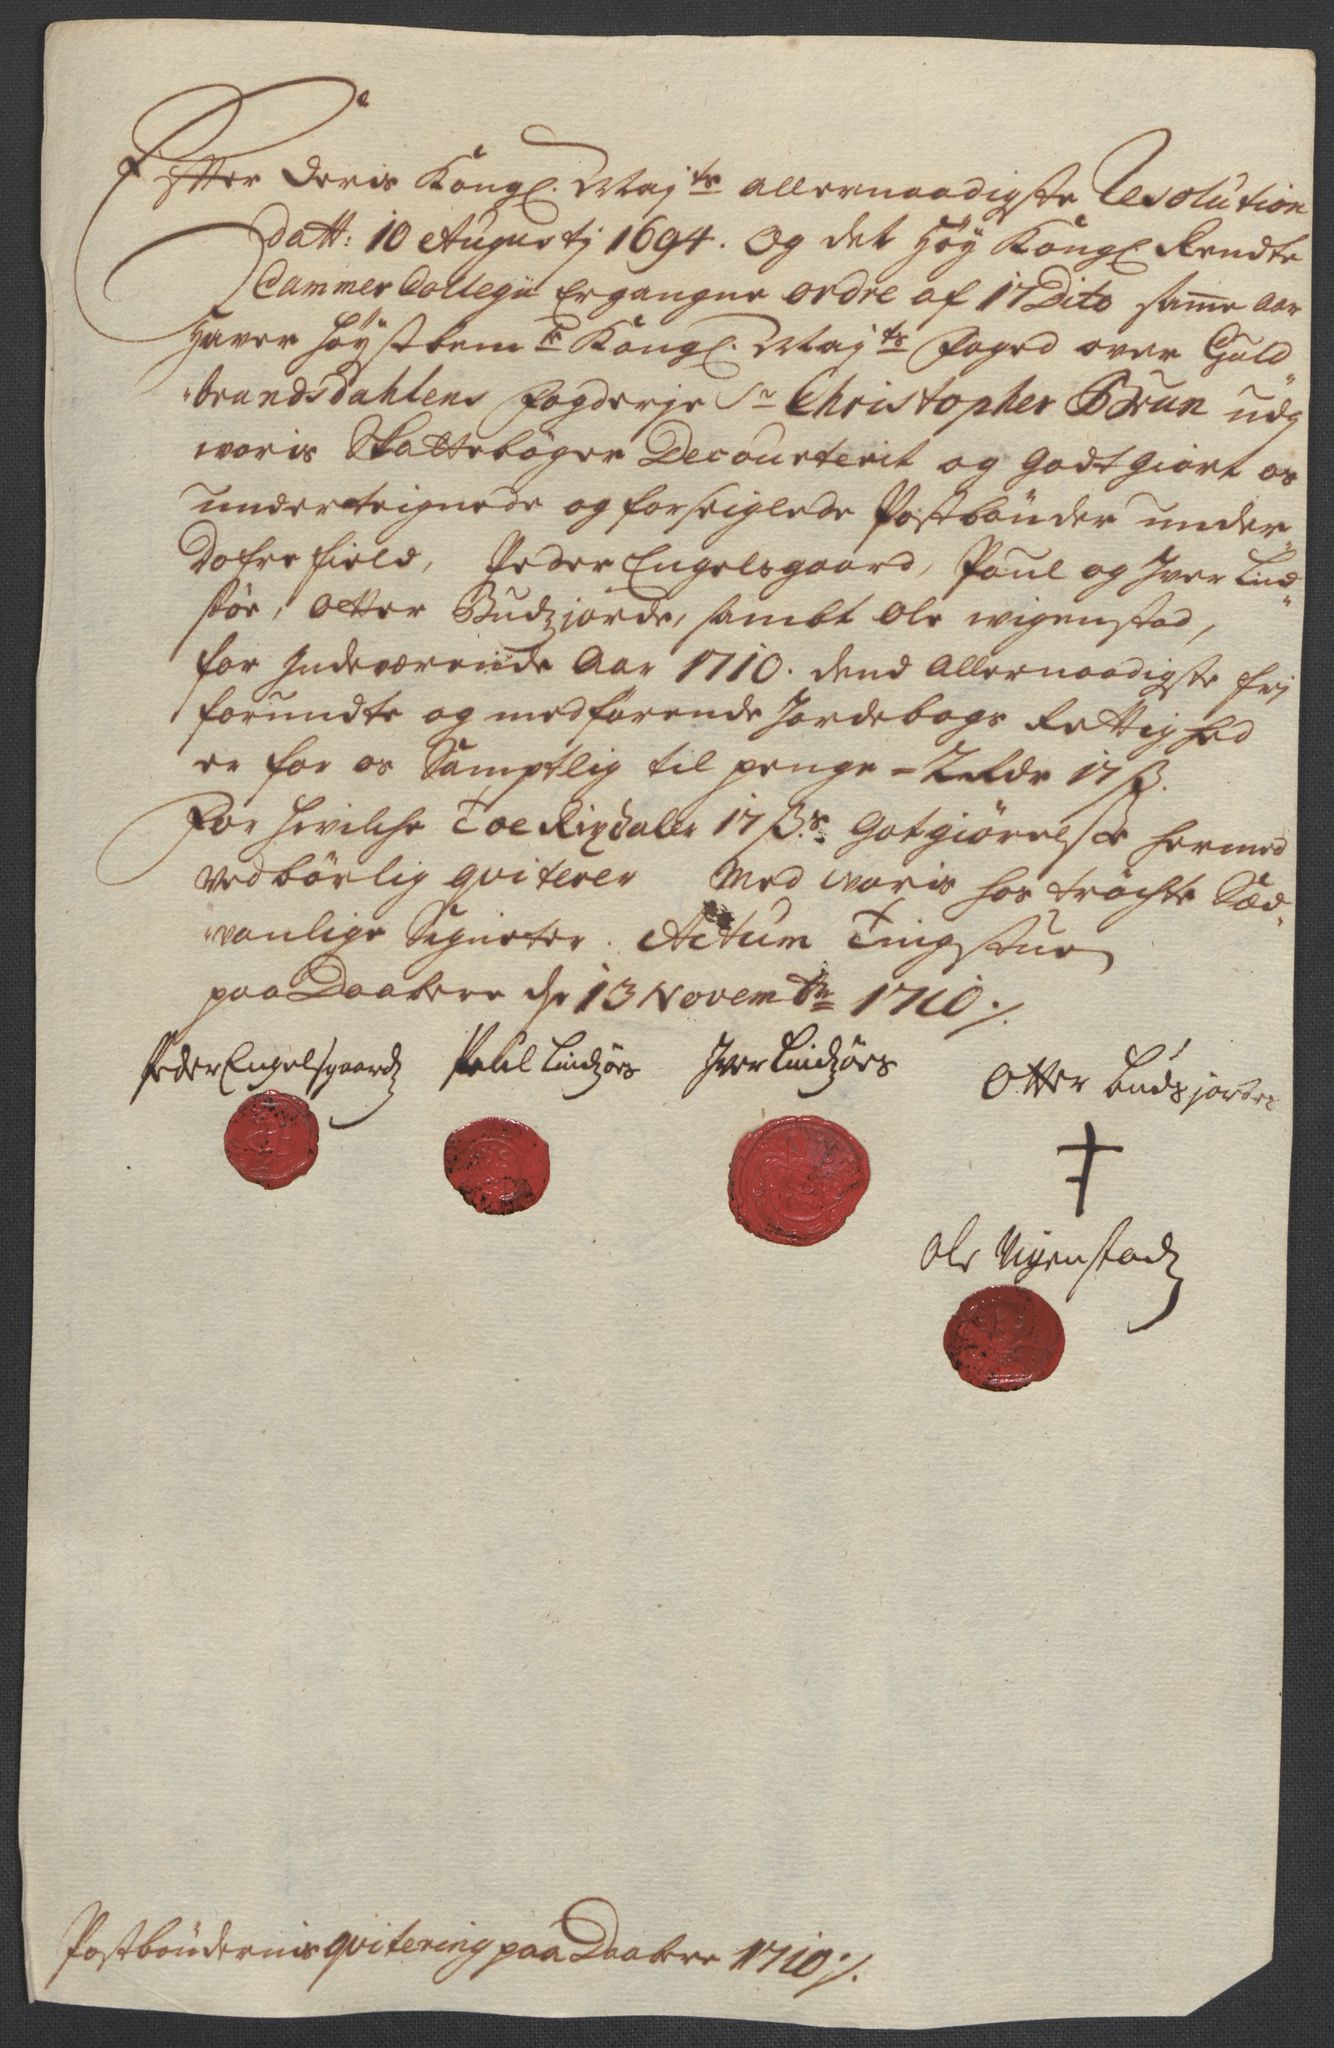 Efter Deris Kongl. Maj:ts allernaadigste Resolution
datt: 10 Augustj 1694. Og det Höÿ Kongl Rendte
Cammer Collegii Ergangne ordre af 17 Dito samme Aar
Haver höÿstbem:te Kongl. Maj:ts Foged over Guld
brandsdahlens Fogderje Sr Christopher Brun udj
woris Skattebøger Decourterit og godtgiort os
underteignede og forseiglede Postbönder under
Dofrefield, Peder Engelsgaard, Poul og Jver Lind
söe, Otter Budzjorde, sambt Ole wigenstad,
for Indeværende Aar 1710. dend Allernaadigste frj
forundte og medfarende Jordebogs Rettighed
er for os Samptlig til penge = 2 Rdr 17 ß.
For hvilche Toe Rixdaler 17 ß:s Gotgiörelse hermed
vedbörlig qviterer Med woris hos tröchte Sæd
vanlige Signeter. Actum Tingstue
paa Daabere dr 13 Novembr 1710 ./.
Peder Engelsgaard Poul Lindsöes Jver Lindsöes Otter Budsjordet
Ole Vigenstad
Postböndernis qvitering paa Daabere 1710 ./.